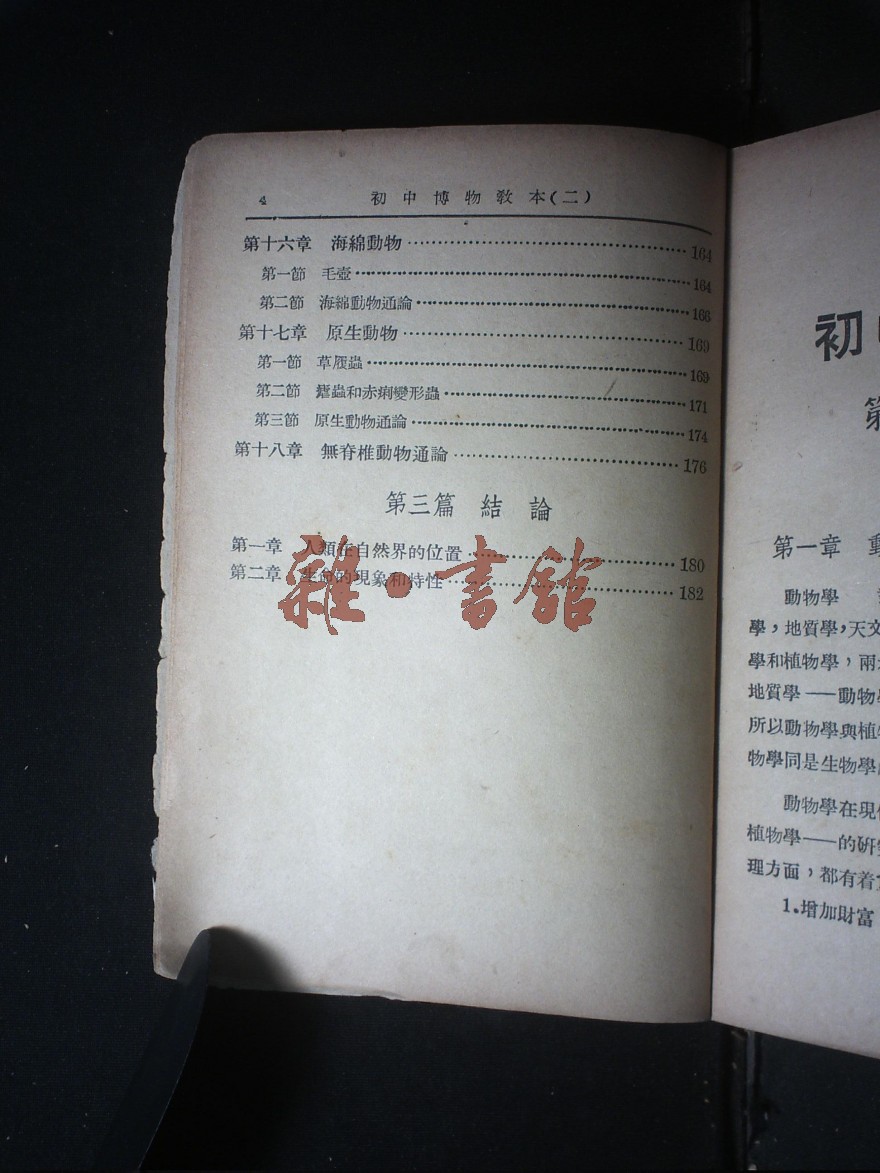 4 初中博物教本(二)
第十六章 海綿動物 164
第一節 毛壺 164
第二節 海綿動物通論 166
第十七章 原生動物 169
第一節 草履蟲 169
第二節 瘧蟲和赤痢變形蟲 171
第三節 原生動物通論 174
第十八章 無脊椎動物通論 176
第三篇 結論
第一章 人類在自然界的位置 180
第二章 生命的現象和特性 182
雜·書館
初
第
第一章 動
動物學
學，地質學，天文
學和植物學，兩
地質學——動物學
所以動物學與植物
物學同是生物學
動物學在現
植物學——的研
理方面，都有着
1.增加財富